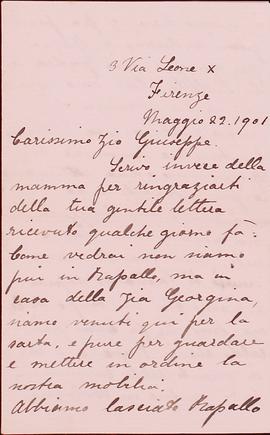 3 Via Leone X
Firenze
Maggio 22. 1901
Carissimo Zio Giuseppe.
Scrivo invece della
mamma per ringraziarti
della tua gentile lettera
ricevuto qualche giorno fà.
Come vedrai non siamo
piú in Rapallo, ma in
casa della Zia Georgina,
siamo venuti qui per la
sarta, e pure per guardare
e mettere in ordine la
nostra mobilia.
Abbiamo lasciato Rapallo